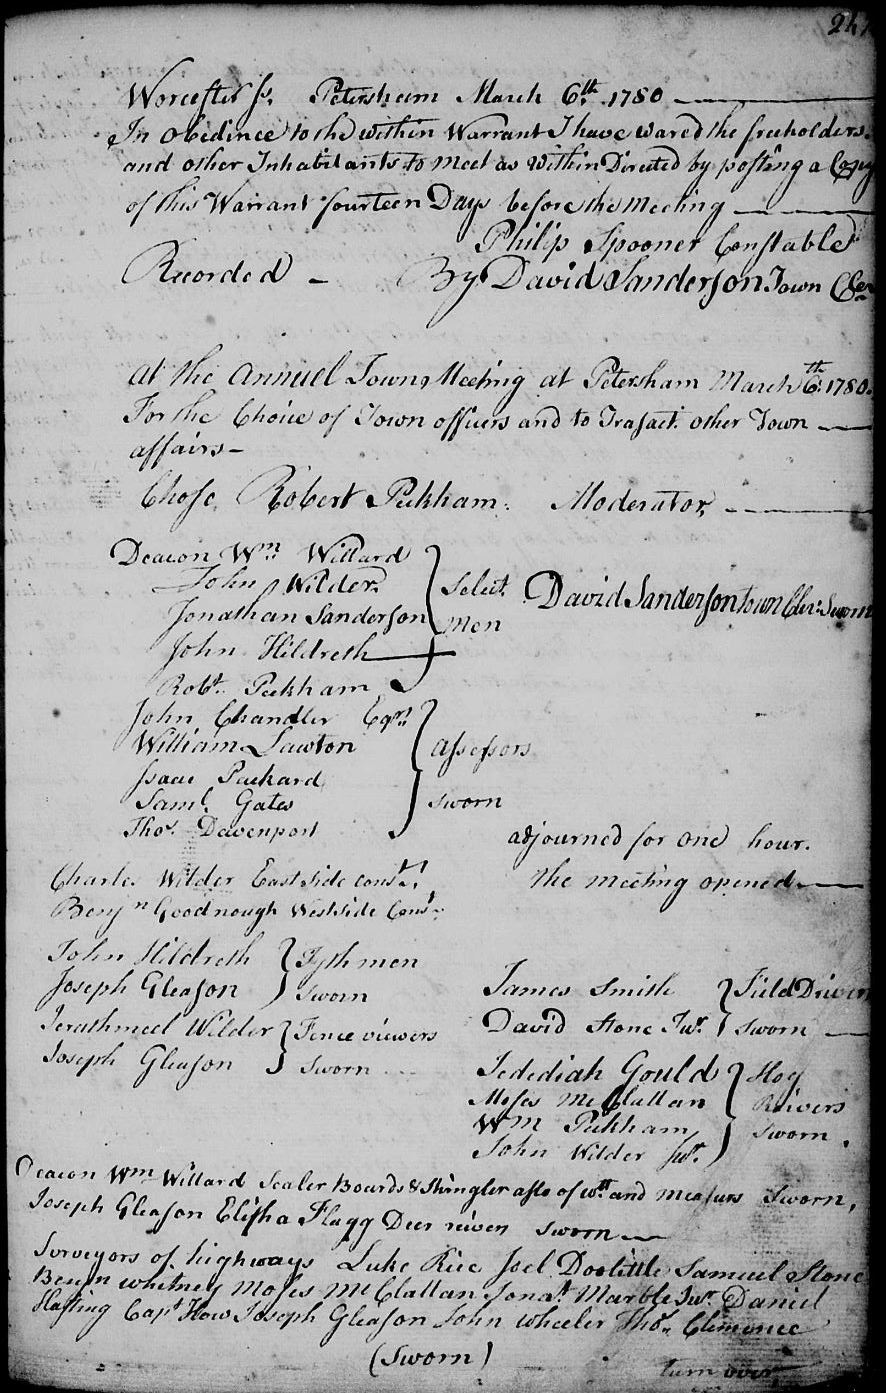 Worcester ss. Petersham March 6th. 1780
In obedince to the within Warrant I have wared the freeholders
and other Inhabitants to meet as within Directed by posting a Copy
of this Warrant fourteen Days before the meeting
Philip Spooner Constable
Recorded - By David Sanderson Town Cler
at the annuel Town Meeting at Petersham March 6th. 1780.
For the Choice of Town officers and to Trasact. other Town
affairs -
Chose Robert Peckham. Moderator,
Deacon Wm. Willard
John Wilder.
Jonathan Sanderson
John Hildreth
Robt. Peckham
Select.
men
David Sanderson town Cler. Sworn
John Chandler Eqr.
William Lawton
Isaac Packard
Saml. Gates
Thos. Davenport
assessors
sworn
adjourned for one hour.
the meeting opened
Charles Wilder East side
Benjn Goodnough West side
John Hildreth
Joseph Gleason
Tythmen
sworn
James Smith
David Stone Jur.
Field Driver
sworn
Jerathmeel Wilder
Joseph Gleason
Fence viewers
sworn
Jedediah Gould
Moses McClallan
Wm Peckham
John Wilder Jur.
Hog
Reivers
sworn.
Deacon Wm Willard Sealer Boards & Shingler also of wtt and measurs sworn,
Joseph Gleason Elisha Flagg Deer reiven sworn
Surveyors of highways Luke Rice Joel Doolittle Samuel Stone
Benjn whitney Moses McClallan Jonat. Marble Jur. Daniel
Hasting Capt How Joseph Gleason John wheeler Thos. Clemence
(sworn)
turn over